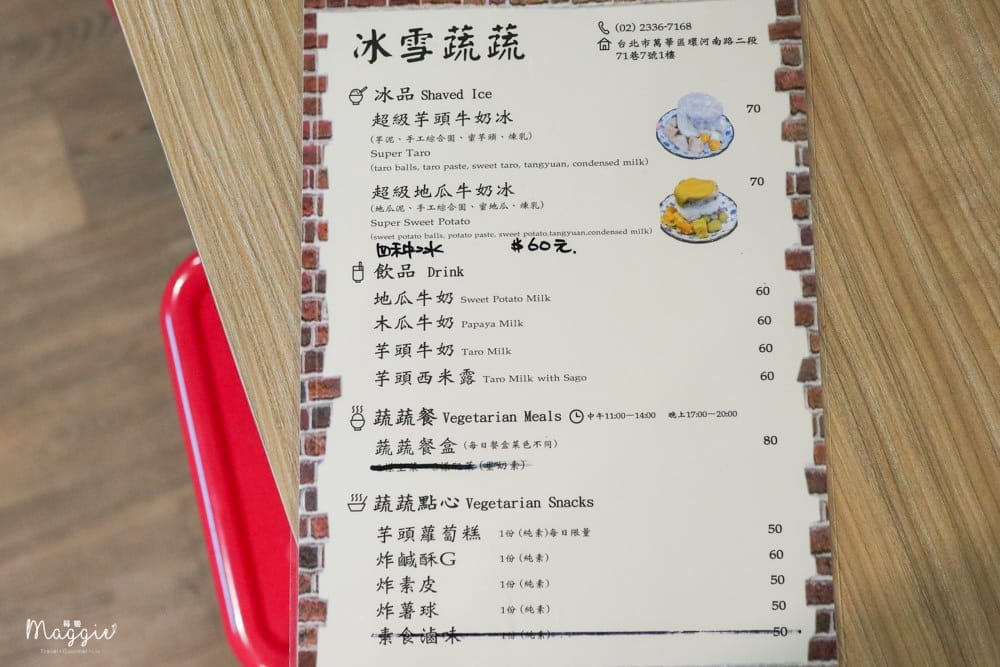 冰雪蔬蔬
(02) 2336-7168
台北市萬華區環河南路二段
71巷7號1樓
冰品 Shaved Ice
超級芋頭牛奶冰 70
(芋泥、手工綜合圓、蜜芋頭、煉乳)
Super Taro
(taro balls, taro paste, sweet taro, tangyuan, condensed milk)
超級地瓜牛奶冰 70
(地瓜泥、手工綜合圓、蜜地瓜、煉乳)
Super Sweet Potato
(sweet potato balls, potato paste, sweet potato,tangyuan,condensed milk)
四種冰 $60元.
飲品 Drink
地瓜牛奶 Sweet Potato Milk 60
木瓜牛奶 Papaya Milk 60
芋頭牛奶 Taro Milk 60
芋頭西米露 Taro Milk with Sago 60
蔬蔬餐 Vegetarian Meals 中午11:00～14:00 晚上17:00～20:00
蔬蔬餐盒 (每日餐盒菜色不同) 80
(蛋奶素)
蔬蔬點心 Vegetarian Snacks
芋頭蘿蔔糕 1份 (純素)每日限量 50
炸鹹酥G 1份 (純素) 60
炸素皮 1份 (純素) 50
炸薯球 1份 (純素) 50
素食滷味 1份 (純素) 50
Maggie